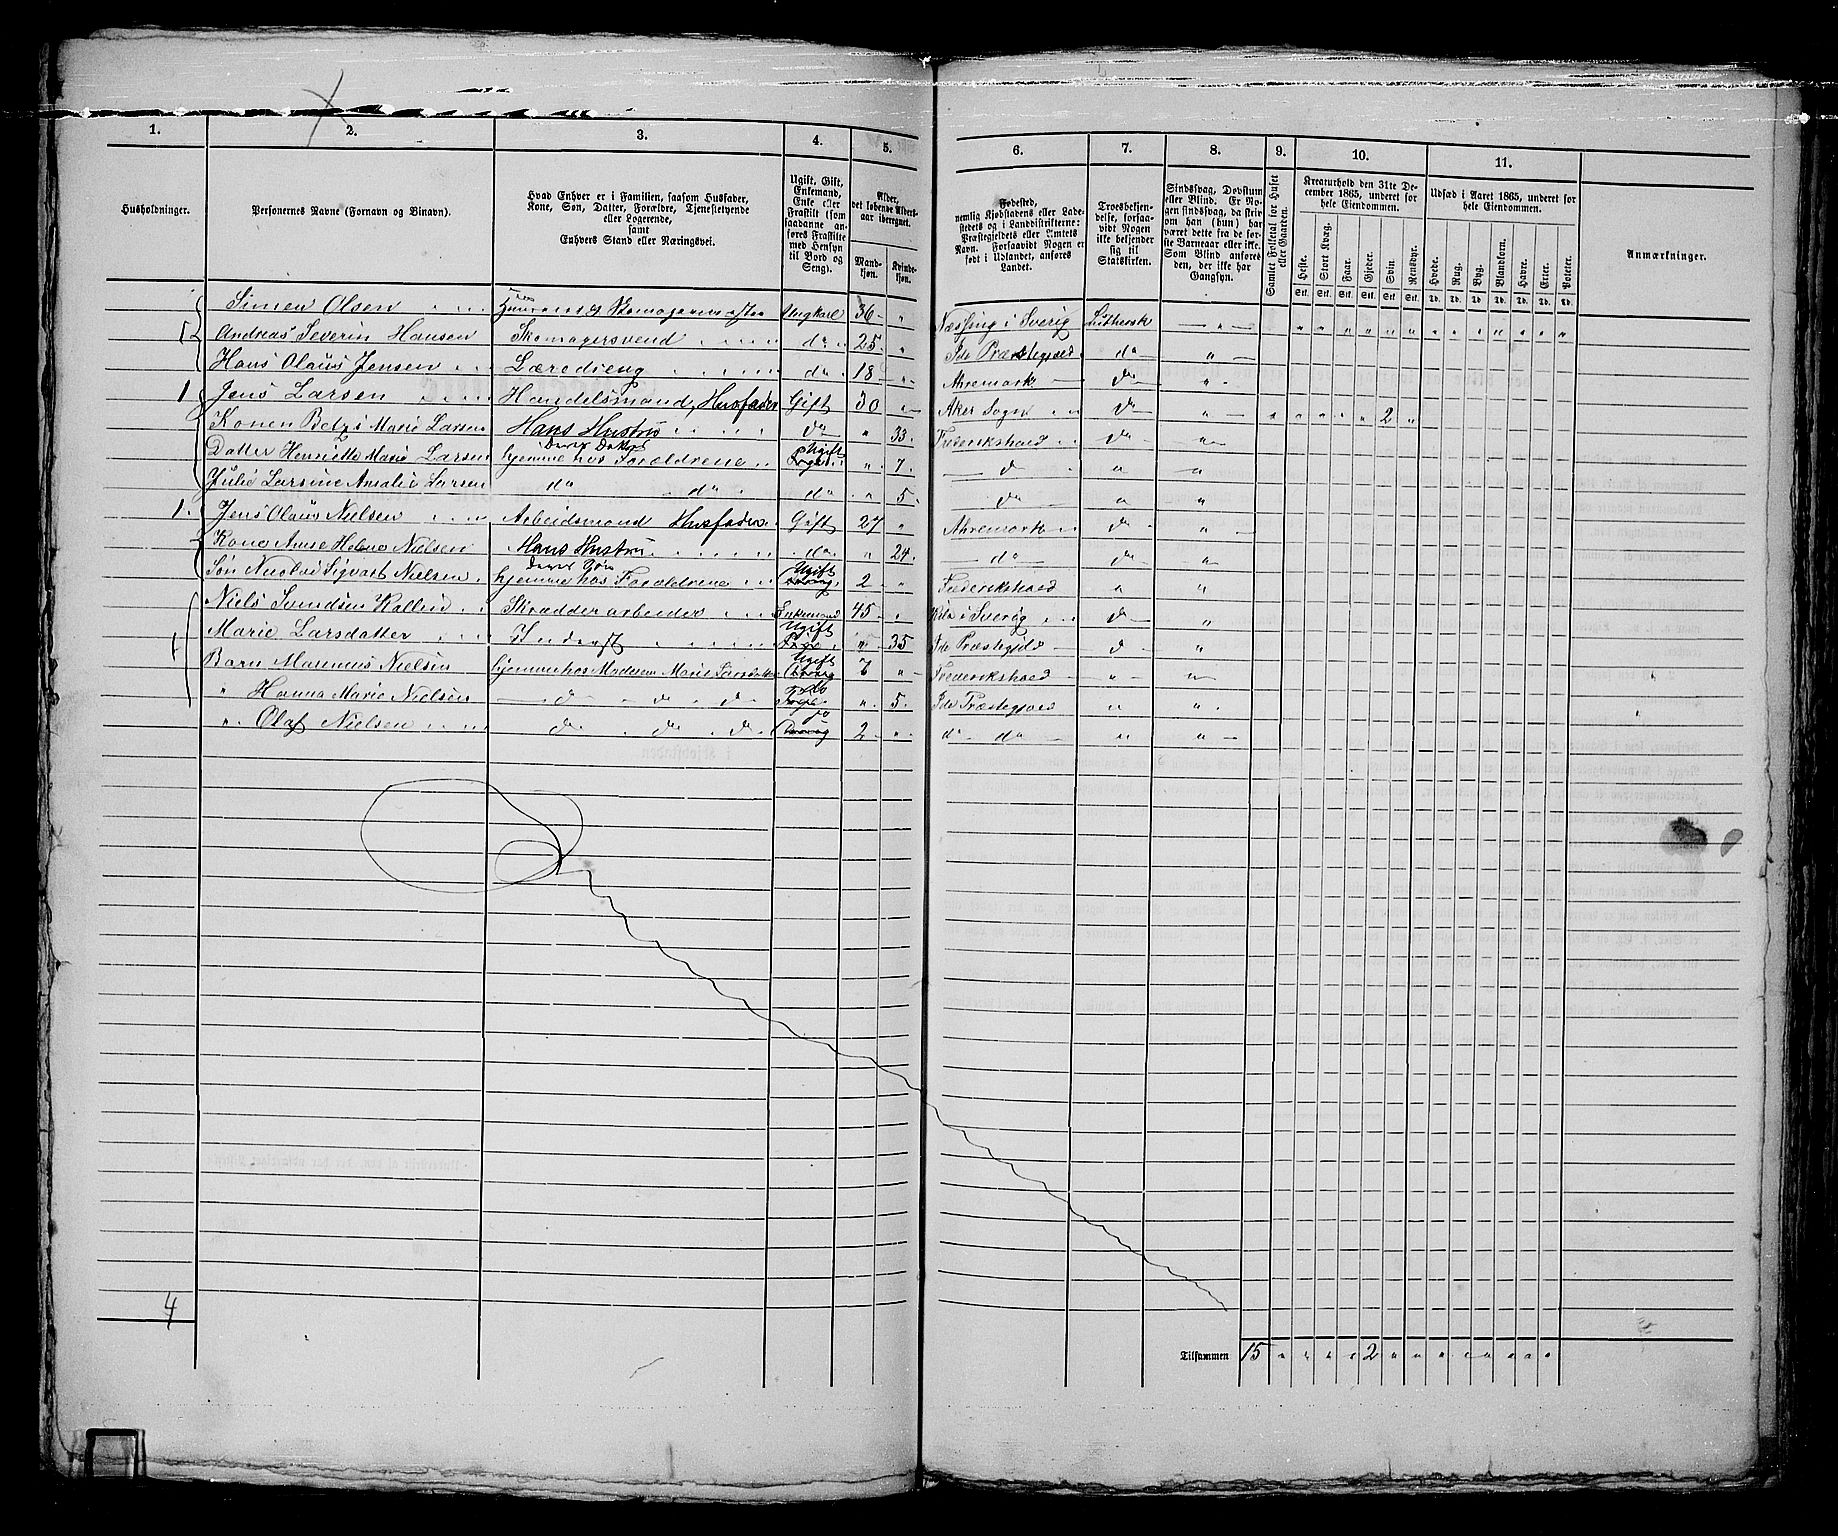 1. 2. 3. 4. 5. 6. 7. 8. 9. 10. 11.
Husholdninger.
Personernes Navne (Fornavn og Binavn).
Hvad Enhver er i Familien, saasom Husfader,
Kone, Søn, Datter, Forældre, Tjenestetyende
eller Logerende,
samt
Enhvers Stand eller Næringsvei.
Ugift, Gift,
Enkemand,
Enke eller
Fraskilt (som
saadanne an-
føres Fraskilte
med Hensyn
til Bord og
Seng).
Alder,
det løbende Alders-
aar iberegnet.
Mand-
kjøn.
Kvinde-
kjøn.
Fødested,
nemlig Kjøbstadens eller Lade-
stedets og i Landdistrikterne:
Præstegjeldets eller Amtets
Navn. Forsaavidt Nogen er
født i Udlandet, anføres
Landet.
Troesbekjen-
delse, forsaa-
vidt Nogen
ikke bekjender
sig til
Statskirken.
Sindssvag, Døvstum
eller Blind. Er No-
gen sindssvag, da skriv
om han (hun) har
været dette fra de før-
ste Barneaar eller ikke.
Som Blind anføres
den, der ikke har
Gangsyn.
Samlet Folketal for Huset
eller Gaarden.
Kreaturhold den 31te De-
cember 1865, underet for
hele Eiendommen.
Heste. Stort Kvæg. Faar. Gjeder. Svin. Rensdyr.
Stk. Stk. Stk. Stk. Stk. Stk.
Udsæd i Aaret 1865, underet for
hele Eiendommen.
Hvede. Rug. Byg. Blandkorn. Havre. Erter. Poteter.
Td. Td. Td. Td. Td. Td. Td.
Anmærkninger.
Simen Olsen Ungkarl 36 " Næssing i Sverig Luthersk "
1 Andreas Severin Hansen Skomagersvend do 25 " Ide Præstegjeld do "
Hans Olaus Jensen Læredreng do 18 " Ahremark do "
1 Jens Larsen Handelsmand, Husfader Gift 30 " Aker Sogn do " 2 "
Konen Betzi Marie Larsen Hans Hustru do " 33 Frederikshald do "
Datter Henriette Marie Larsen hjemme hos Forældrene Deres Datter Ugift " 7 do " "
Julie Larsine Amalie Larsen do do do " 5 do " "
1 Jens Olaus Nielsen Arbeidsmand Husfader Gift 27 " Ahremark do "
Kone Anne Helene Nielsen Hans Hustru do " 24 do do "
Søn Nicolai Sigvart Nielsen hjemme hos Forældrene Deres Søn Ugift 2 " Frederikshald " "
Niels Svendsen Kallin Skrædderarbeider Enkemand 45 " i Sverig do "
1 Marie Larsdatter Inderst Ugift " 35 Ide Præstegjeld do "
Barn Marenius Nielsen hjemme hos Moderen Marie Larsdatter Ugift 7 " Frederikshald " "
" Hanna Marie Nielsen do do do do " 5 Ide Præstegjeld " "
" Olaf Nielsen do do do do 2 " do do " "
4
Tilsammen 15 " " " " 2 " " " " " " " "